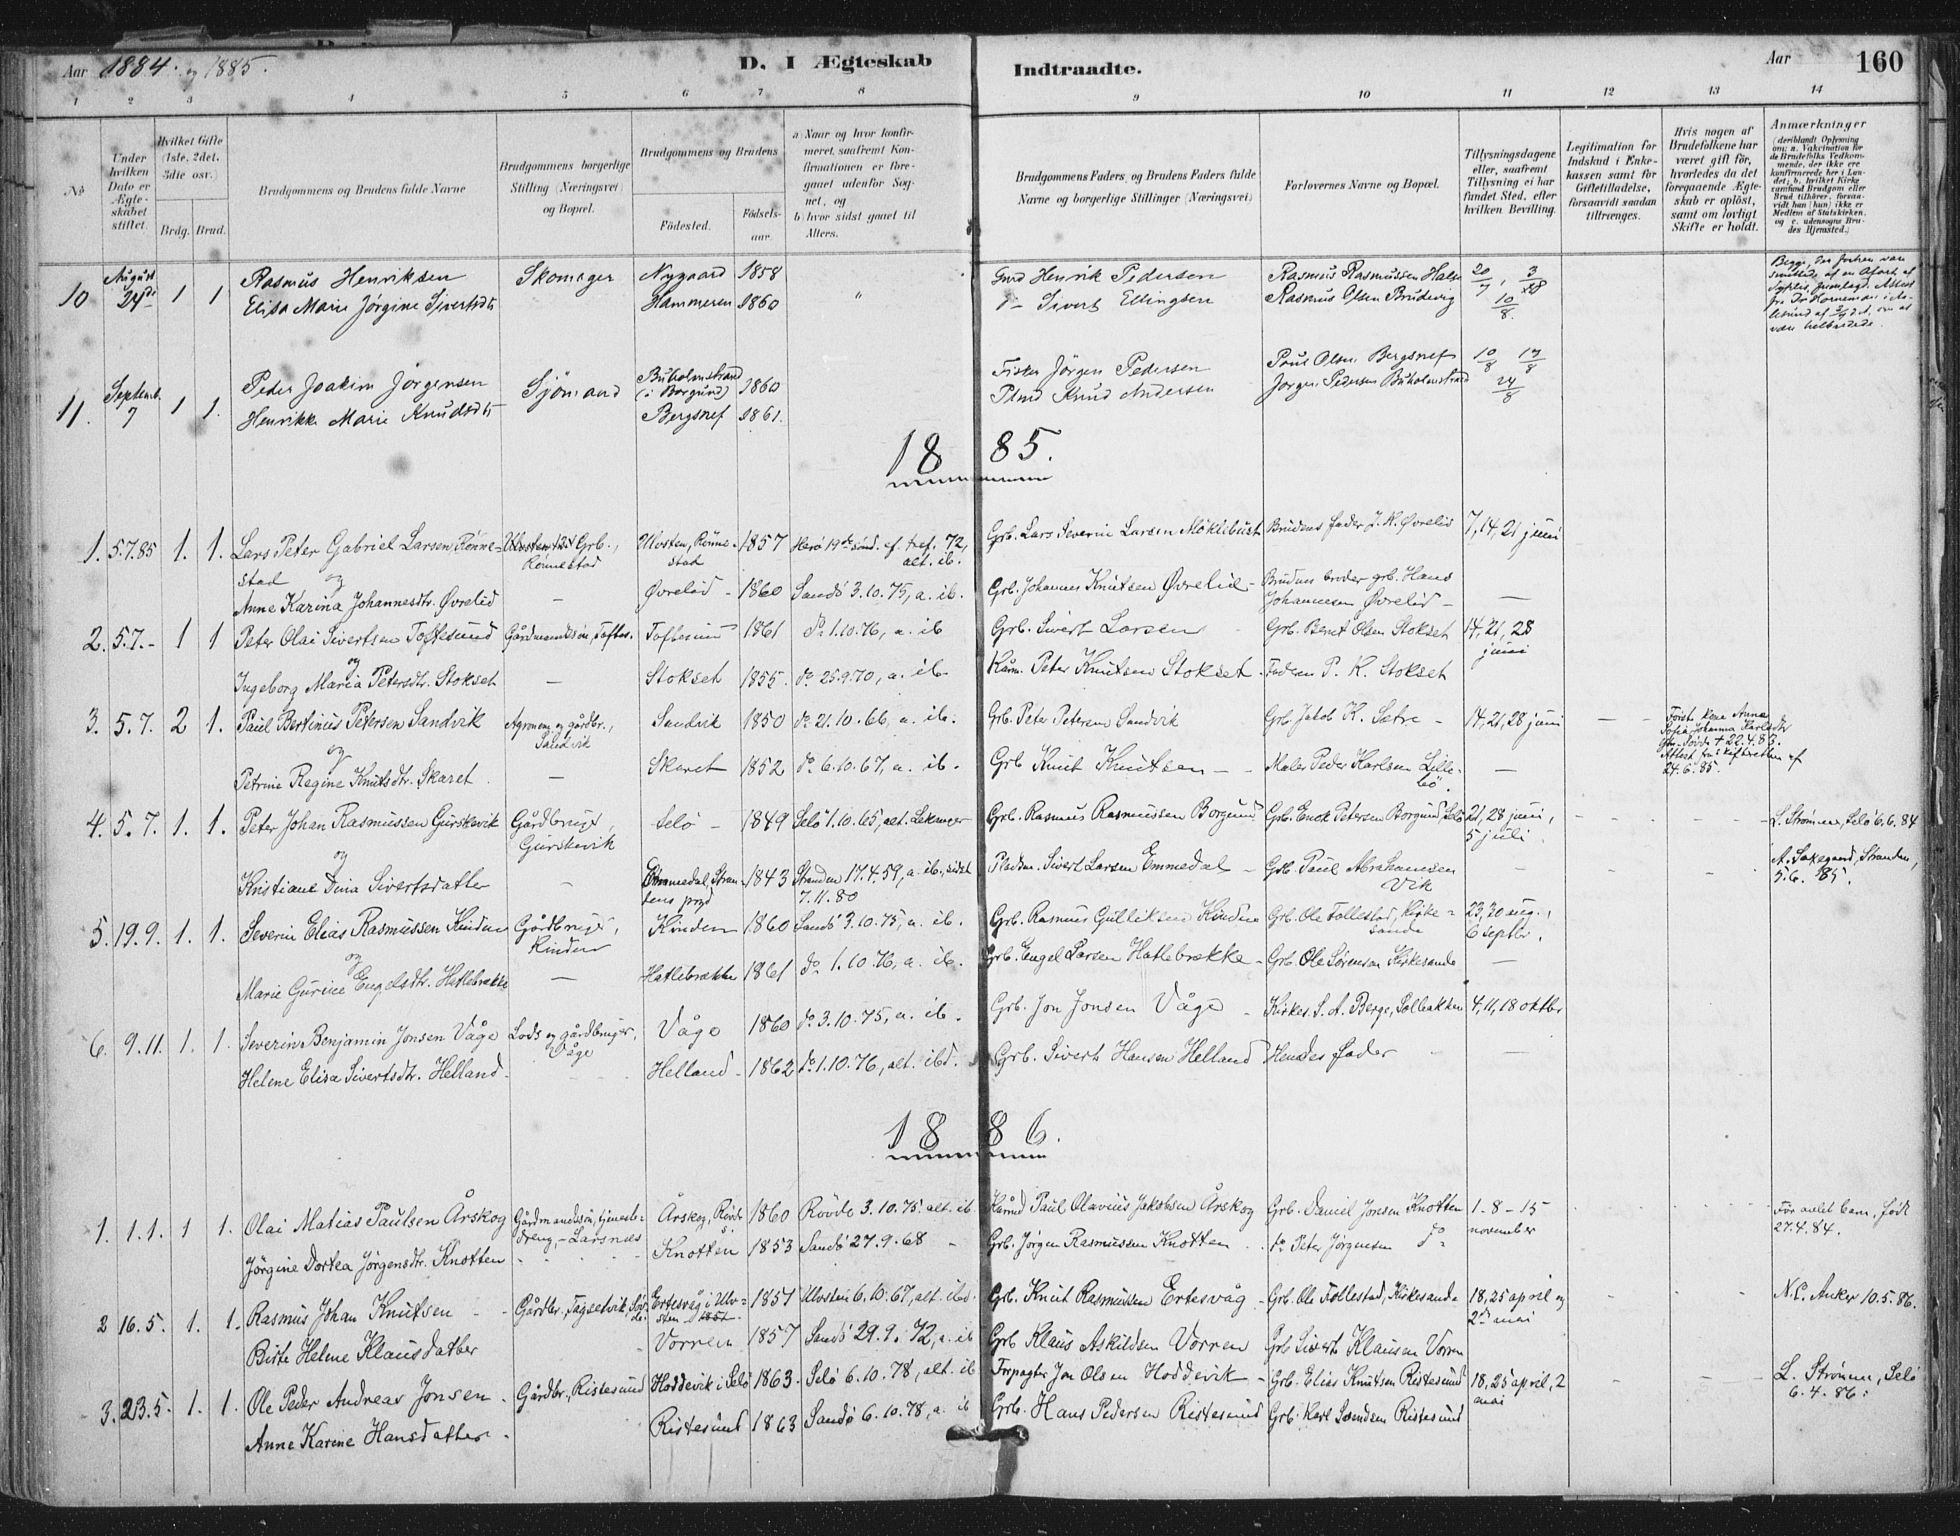 Aar 1884. og 1885.
D. I Ægteskab Indtraadte.
Aar 160
1 2 3 4 5 6 7 8 9 10 11 12 13 14
No
Under hvilken Dato er Ægteskabet stiftet.
Hvilket Gifte (1ste, 2det, 3die osv.)
Brdg. Brud.
Brudgommens og Brudens fulde Navne
Brudgommens borgerlige Stilling (Næringsvei) og Bopæl.
Brudgommens og Brudens
Fødested.
Fødselsaar.
a) Naar og hvor konfirmeret, saafremt Konfirmationen er foregaaet udenfor Sognet, og
b) hvor sidst gaaet til Alters.
Brudgommens Faders, og Brudens Faders fulde Navne og borgerlige Stillinger (Næringsvei)
Forlovernes Navne og Bopæl.
Tillysningsdagene eller, saafremt Tillysning ei har fundet Sted, efter hvilken Bevilling.
Legitimation for Indskud i Enkekassen samt for Giftetilladelse, forsaavidt saadan tiltrænges.
Hvis nogen af Brudefolkene har været gift før, hvorledes da det foregaaende Ægteskab er opløst, samt om lovligt Skifte er holdt.
Anmærkninger (deriblandt Oplysning om: a. Vakcination for de Brudefolks Vedkommende, der ikke ere konfirmerede her i Landet; b. hvilket Kirkesamfund Brudgom eller Brud tilhører, forsaavidt han (hun) ikke er Medlem af Statskirken, og c. udensogns Brudes Hjemsted.)
10 August 24de 1 1 Rasmus Henriksen Skomager Nygaard 1858 " Gmd Henrik Pedersen Rasmus Rasmussen 20/7, 3/8
Elisa Marie Jørgine Sivertsdt Hammeren 1860 Sivert Ellingsen Rasmus Olsen Brudevig 10/8.
11. Septemb. 7 1 1. Peder Joakim Jørgensen Sjömand Buholmstrand (i Borgund) 1860 Fisker Jörgen Pedersen Poul Olsen Bergsnef 10/8 17/8
Henrikke Marie Knudsdt Bergsnef 1861. Knud Andersen Jørgen Pedersen Buholmstrand 24/8
1885.
1. 5.7.85 1. 1. Lars Peter Gabriel Larsen, Rønnestad Grb., Rønnestad Ulvsten, Rønnestad 1857 Herö 19de sønd. ef. tref. 72, alt. ib. Grb. Lars Severin Larsen Møklebust Brudens fader J. K. Øvrelid 7, 14, 21 juni
og
Anne Karina Johannesdtr. Øvrelid — Øvrelid - 1860 Sandö 3.10.75, a. ib. Grb. Johannes Knutsen Øvrelid - Brudens broder grb. Hans Johannesen Øvrelid - —
2. 5.7. - 1 1 Peter Olai Sivertsen Toftesund Gårdmandssön, Toftes. Toftesund 1861 do 1.10.76, a. ib Grb. Sivert Larsen - Grb. Bernt Olsen Stokset 14, 21, 28 juni
og
Ingeborg Maria Petersdtr. Stokset — Stokset 1855. do 25.9.70, a. ib. Kårm. Peter Knutsen Stokset. Faderen P. K. Stokset
3. 5.7. 2 1. Paul Bertinius Petersen Sandvik Agronom og gårdbr., Sandvik Sandvik 1850 do 21.10.66, a. ib. Grb. Peter Petersen Sandvik Grb. Jakob K. Sætre - 14, 21, 28 juni - - Første kone Anne Sofia Johanna Karlsdtr + 22.4.83. Attest fra skifteretten af 24.6.85.
og
Petrine Regine Knutsdtr. Skaret. — Skaret 1852 do 6.10.67, a. ib. Grb Knut Knutsen - - Maler Peder Karlsen Lillebö. —
4. 5.7. 1. 1. Peter Johan Rasmussen Gurskevik Gårdbruger, Gurskevik Selö - 1849 Selö 1.10.65, alt. Lekanger Grb. Rasmus Rasmussen Borgund Grb. Enok Petersen Borgund, Selö 21, 28 juni, 5 juli. L. Strømme, Selö 6.6.84
og
Kristiane Dina Sivertsdatter — Emmedal, Strandens prgd 1843 Stranden 17.4.59, a. ib., sidst 7.11.80 Pladsm. Sivert Larsen Emmedal - Grb. Paul Abrahamsen Vik - A. Sakegaard, Stranden, 5.6.85.
5. 19.9. 1. 1. Severin Elias Rasmussen Kinden Gårdbruger, Kinden Kinden 1860 Sandö 3.10.75, a. ib. Grb. Rasmus Gulliksen Kinden Grb. Ole Follestad, Kirkesande 23, 30 aug., 6 septbr.
og
Marie Gurine Engelsdtr. Hatlebrække — Hatlebrække 1861 do 1.10.76, a. ib. Grb. Engel Larsen Hatlebrække - Grb. Ole Sørensen Kirkesande —
6. 9.11. 1. 1. Severin Benjamin Jonsen Våge Lods og gårdbruger, Våge Våge 1860 do 3.10.75, a. ib. Grb. Jon Jonsen Våge - Kirkes. S. A. Berge, Solbakken 4, 11, 18 oktbr
Helene Elisa Sivertsdtr. Helland. Helland. 1862 do 1.10.76, alt. ibd. Grb. Sivert Hansen Helland Hendes fader —
1886.
1. 1.1. 1 1. Olai Matias Paulsen Årskog Gårdmandssön, tjenestedreng, - Larsnes Årskog, Rövde 1860 Rövde 3.10.75. alt. ib Kårmd Paul Olavius Jakobsen Årskog Grb. Daniel Jonsen Knotten 1 - 8 - 15 november För avlet barn, født 27.4.84.
Jörgine Dortea Jörgensdtr. Knotten Knotten 1853 Sandö 27.9.68 - Grb. Jørgen Rasmussen Knotten do Peter Jørgensen do
2 16.5. 1. 1. Rasmus Johan Knutsen - - Gårdbr. Ertesvåg i Ulvsten 1851 Ulvsten 6.10.67, alt. ibd. Grb. Knut Rasmussen Ertesvåg Grb. Ole Follestad, Kirkesande 18, 25 april og 2den mai N. C. Anker 10.5.86.
Birte Helene Klausdatter Vorren 1857 Sandö 29.9.72, a. ib Grb Klaus Askildsen Vorren Grb Sivert Klausen Vorren
3. 23.5. 1. 1. Ole Peder Andreas Jonsen - Gårdbr., Ristesund Hoddevik i Selö 1863 Selö 6.10.78, alt. ib Forpagter Jon Olsen Hoddevik - Grb. Elias Knutsen Ristesund 18, 25 april, 2 mai L. Strømme, Selö 6.4.86.
Anne Karine Hansdatter. Ristesund 1863 Sandö 6.10.78, a. ib Grb. Hans Pedersen Ristesund Grb. Karl Svendsen Ristesund